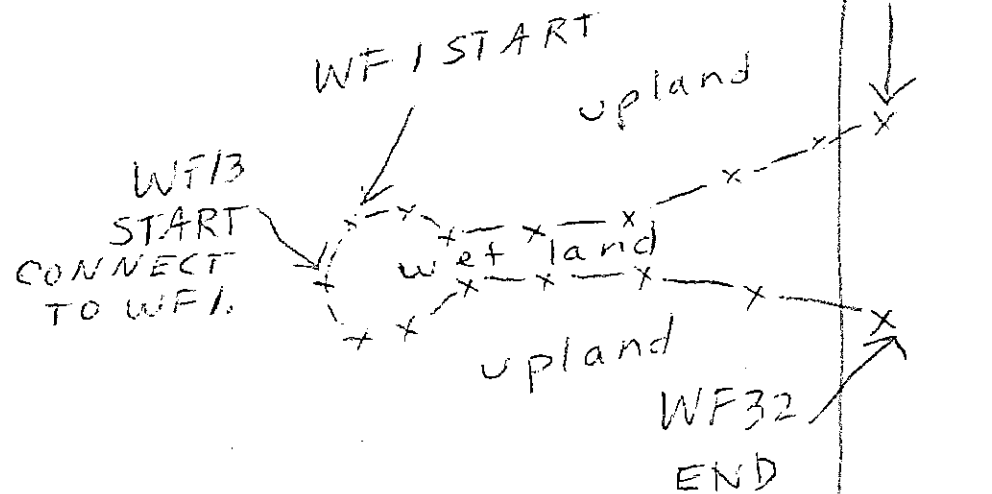 WF1 START
upland
WF13
START
CONNECT
TO WF1.
wetland
upland
WF32
END